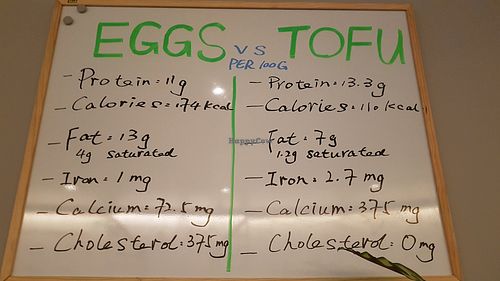 EGGS VS TOFU
PER 100G
- Protein: 11g
- Calories: 174 kcal
- Fat: 13g
4g saturated
- Iron: 1 mg
- Calcium: 72.5 mg
- Cholesterol: 375 mg
- Protein: 13.3g
- Calories: 110 kcal
Fat: 7g
1.2g saturated
- Iron: 2.7 mg
- Calcium: 375 mg
- Cholesterol: 0 mg
HappyCow